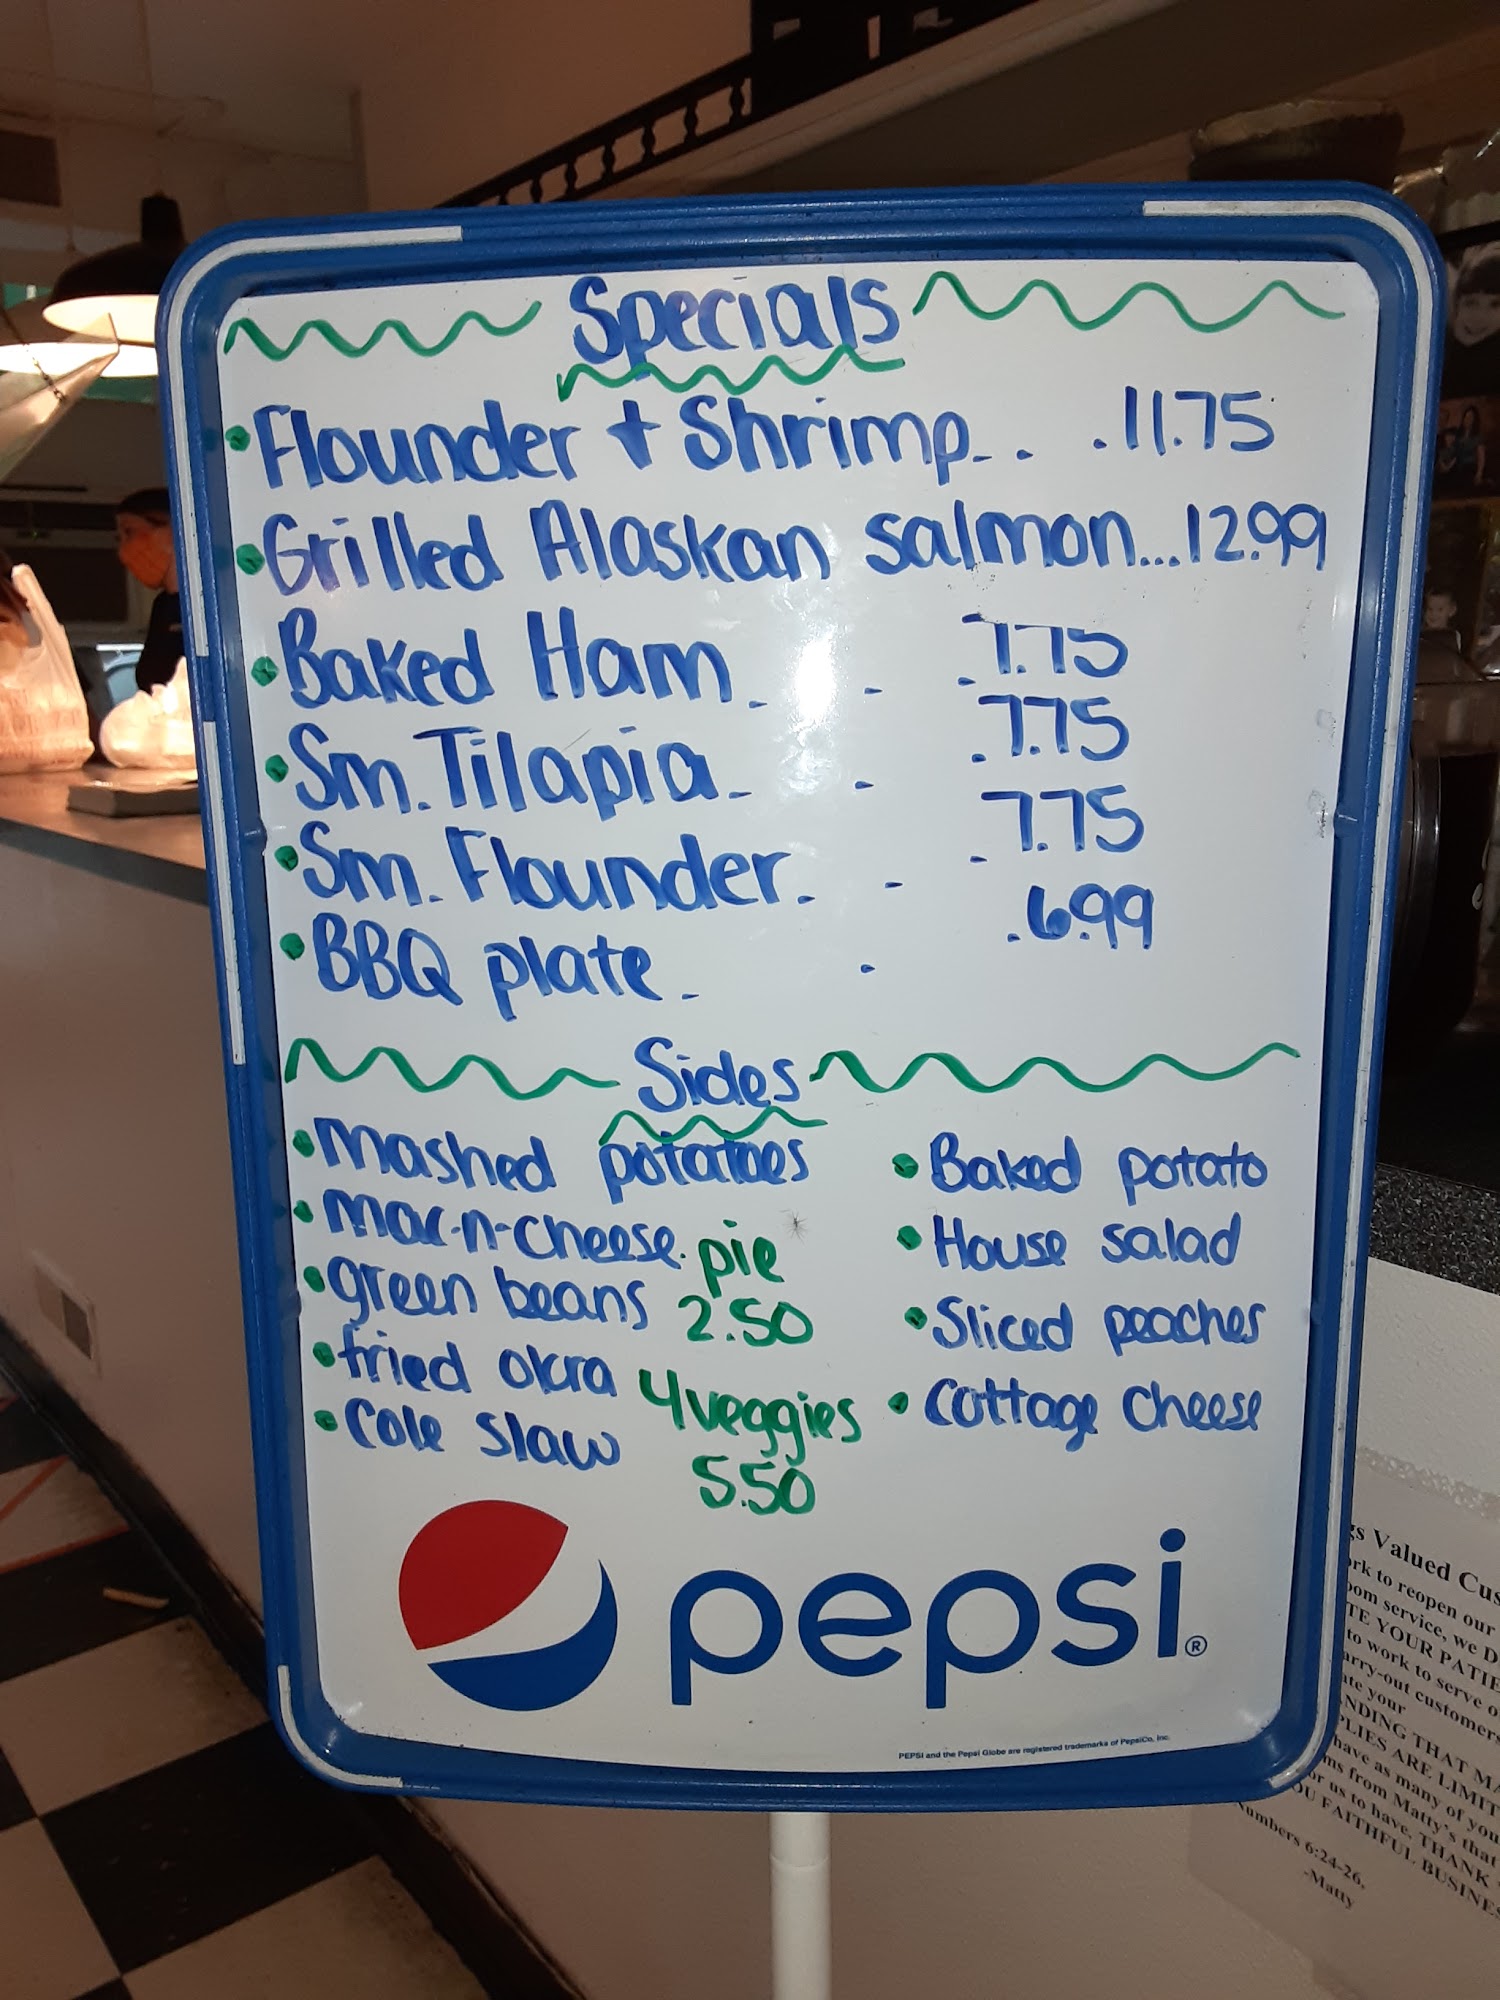 Specials
• Flounder + Shrimp. . . .11.75
• Grilled Alaskan salmon...12.99
• Baked Ham. . .7.75
• Sm. Tilapia. . .7.75
• Sm. Flounder. . .7.75
• BBQ plate. . .6.99
Sides
• mashed potatoes
• mac-n-cheese.
• green beans
• fried okra
• Cole slaw
pie
2.50
4 veggies
5.50
• Baked potato
• House salad
• Sliced peaches
• Cottage Cheese
pepsi®
PEPSI and the Pepsi Globe are registered trademarks of PepsiCo, Inc.
Valued
to reopen our
service, we
YOUR
to work to serve
carry-out customers
your
THAT
ARE
have as many of your
from Matty's that
for us to have. THANK
FAITHFUL
Numbers 6:24-26,
-Matty